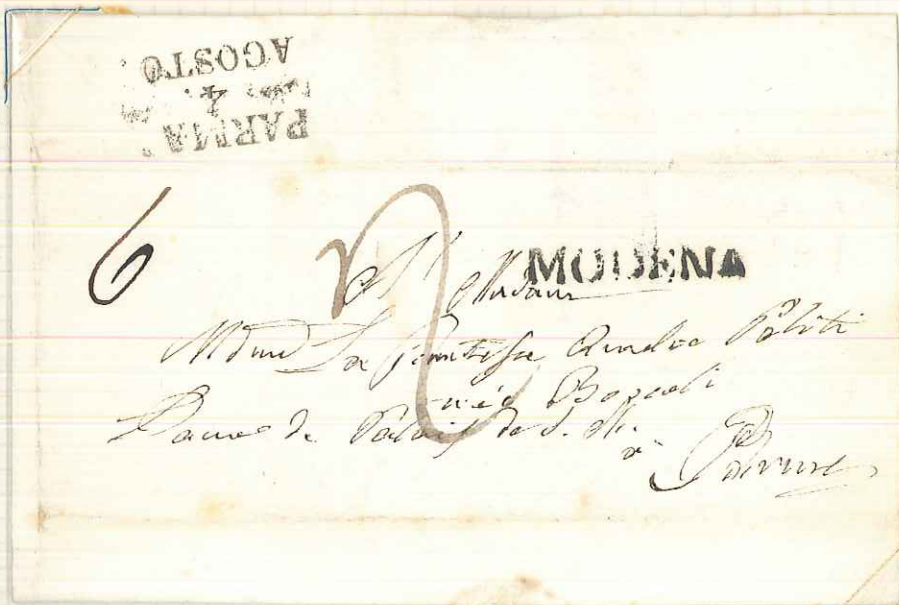 PARMA
4
AGOSTO
6
MODENA
A Madame
Mdme La Comtesse Amalie Politi
née Bozzoli
Dame de Palais de S. M.
a Parme